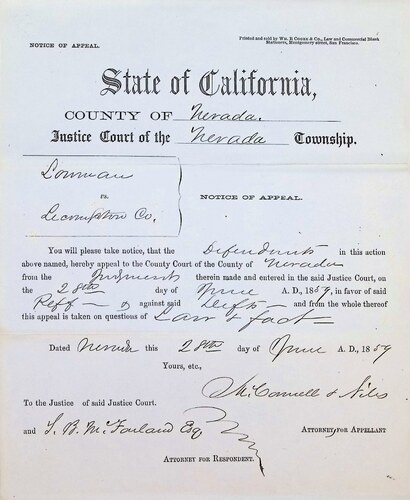 Printed and sold by WM. B COOKE & CO., Law and Commercial Blank
NOTICE OF APPEAL. Stationers, Montgomery street, San Francisco.
State of California,
COUNTY OF Nevada.
Justice Court of the Nevada Township.
Lowman
vs.
Lecompton Co.
NOTICE OF APPEAL.
You will please take notice, that the Defendants in this action
above named, hereby appeal to the County Court of the County of Nevada
from the Judgment therein made and entered in the said Justice Court, on
the 28th day of June A. D., 1859, in favor of said
Plff against said Defts and from the whole thereof
this appeal is taken on questions of Law & fact
Dated Nevada this 28th day of June A. D., 1859
Yours, etc.,
McConnell & Niles
To the Justice of said Justice Court. ATTORNEY FOR APPELLANT
and J. B. McFarland Esq
ATTORNEY FOR RESPONDENT.